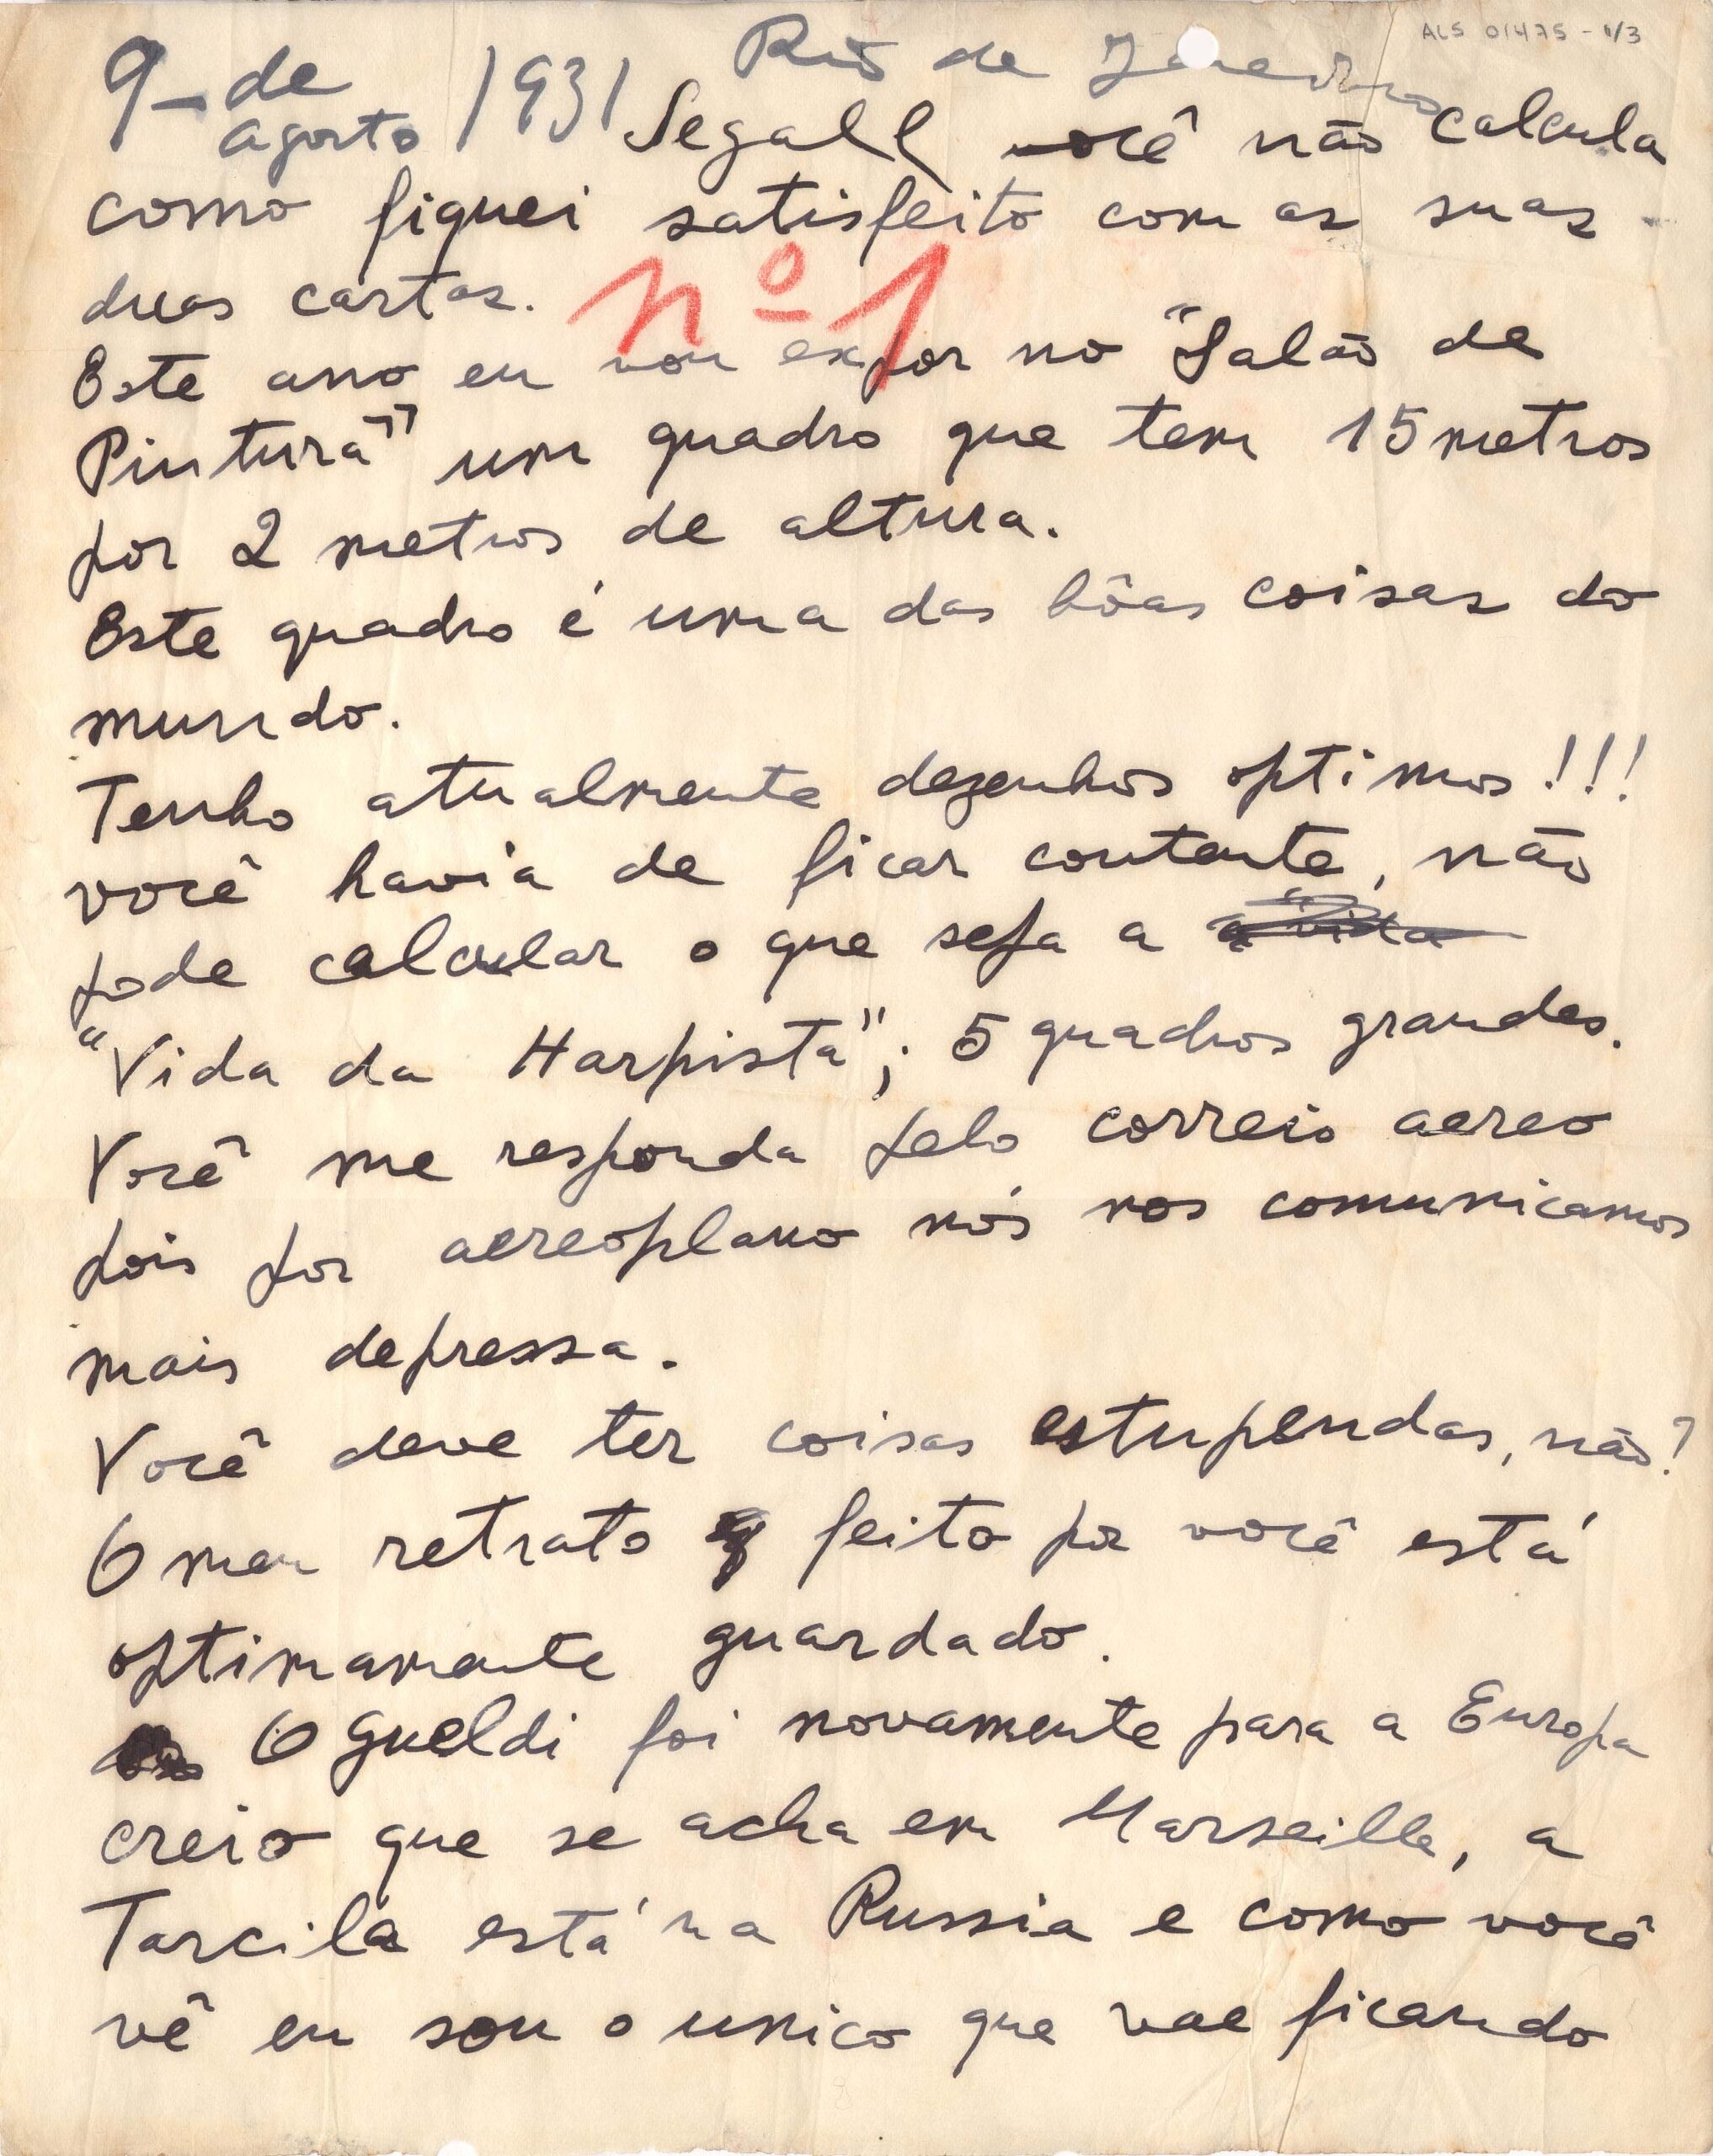 ALS 01475 - 1/3
Rio de Janeiro
9 - de agosto 1931 Segall você não calcula
como fiquei satisfeito com as suas
duas cartas.
nº 1
Este ano eu vou expor no "Salão de
Pintura" um quadro que tem 15 metros
por 2 metros de altura.
Este quadro é uma das bôas coisas do
mundo.
Tenho atualmente dezenhos optimos!!!
você havia de ficar contente, não
pode calcular o que seja a
"Vida da Harpista"; 5 quadros grandes.
Você me responda pelo correio aereo
pois por aereoplano nós nos comunicamos
mais depressa.
Você deve ter coisas estupendas, não?
O meu retrato feito por você está
optimamente guardado.
O Gueldi foi novamente para a Europa
creio que se acha em Marseille, a
Tarcila está na Russia e como você
vê eu sou o unico que vae ficando